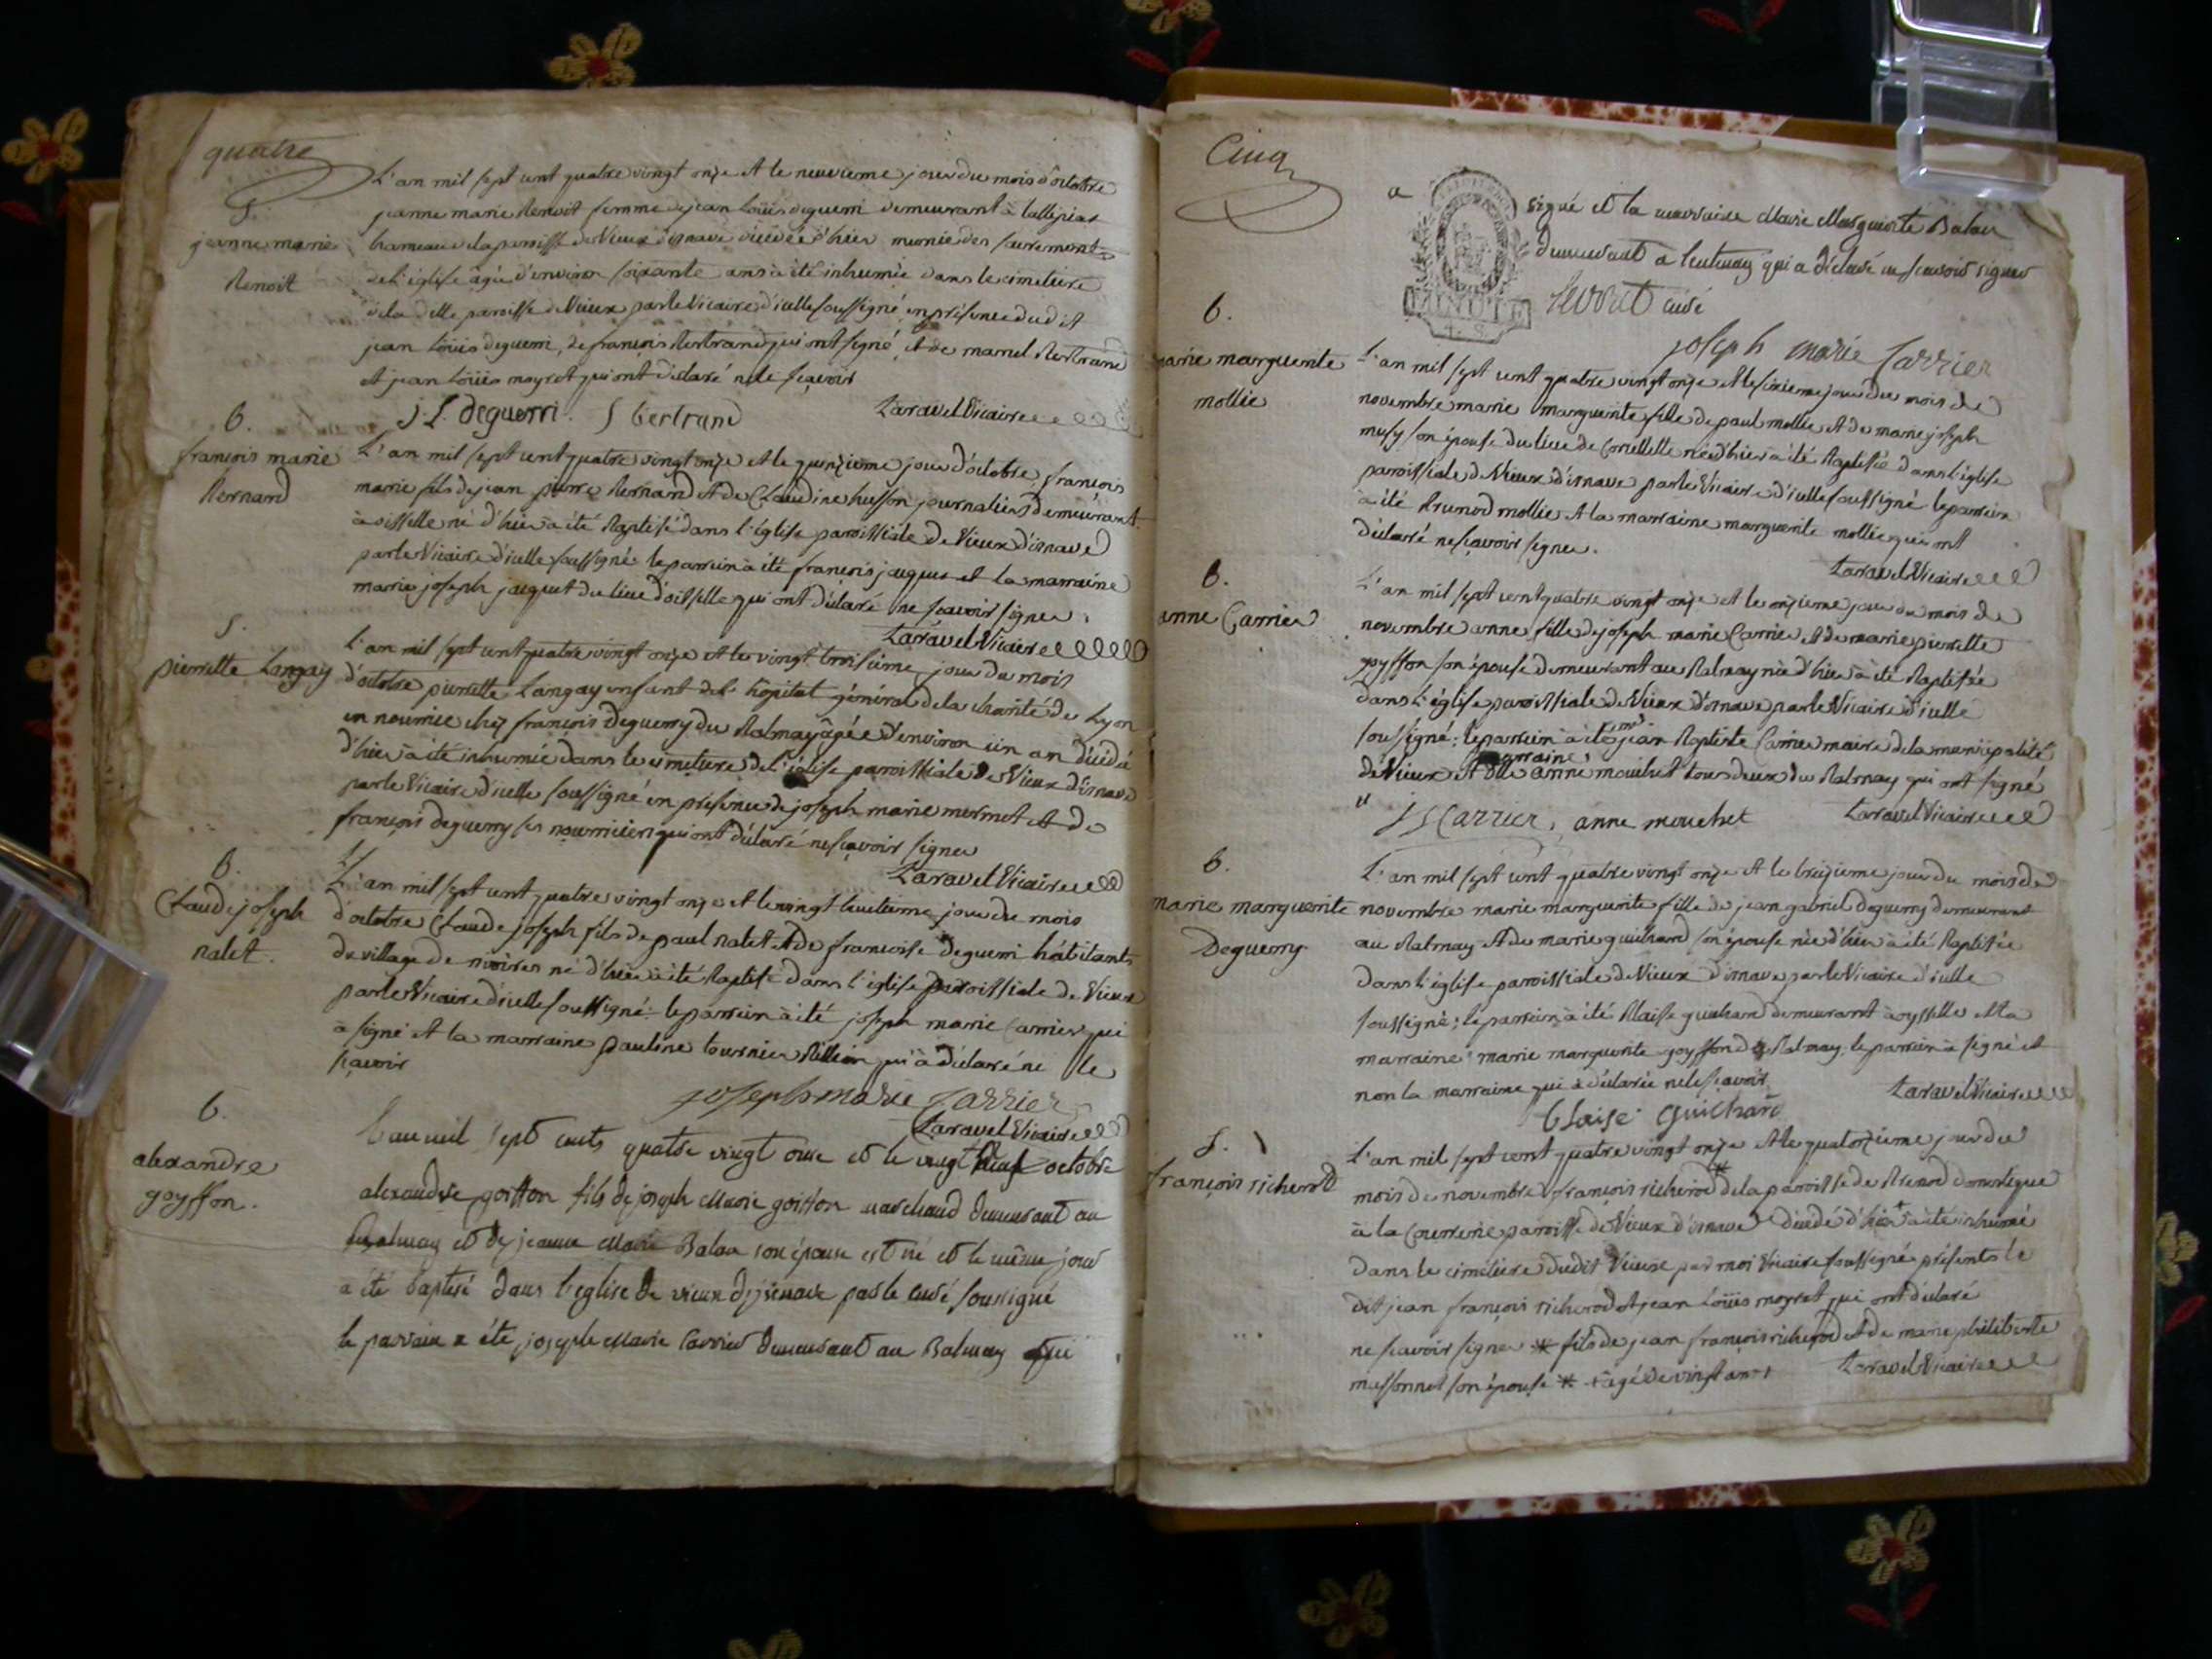 quatre
L'an mil sept cent quatre vingt onze et le neuvieme jour du mois d'octobre
S.
jeanne marie
Benoit
jeanne marie Benoit femme de jean Loüis deguerri demeurant à
hameau de la paroisse de Vieux d'isnave décédée d'hier munie des sacrements
de l'église âgée d'environ soixante ans à été inhumée dans le cimetiere
de la dite paroisse de Vieux par le Vicaire d'icelle soussigné en présence dudit
jean Loüis deguerri, de françois Bertrand qui ont signé, et de Bertrand
et jean Loüis moyret qui ont déclaré ne le sçavoir
j. L. deguerri. f bertrand Laravel Vicaire
B.
françois marie
Bernand
L'an mil sept cent quatre vingt onze et le quinzieme jour d'octobre françois
marie fils de jean pierre Bernand et de Claudine husson journaliers demeurant
à oisselle né d'hier à été Baptisé dans l'église paroissiale de Vieux d'isnave
par le Vicaire d'icelle soussigné le parrein à été françois jacques et la marraine
marie joseph jacquet du lieu d'oisselle qui ont déclaré ne scavoir signer.
Laravel Vicaire
S.
pierrette Langay
L'an mil sept cent quatre vingt onze et le vingt troisieme jour du mois
d'octobre pierrette Langay enfant de l'hôpital général de la charité de Lyon
en nourrice chez françois Deguerry du Balmay âgée d'environ un an décédé
d'hier à été inhumée dans le cimetiere de l'église paroissiale de Vieux d'isnave
par le Vicaire d'icelle soussigné en présence de joseph marie mermet et de
françois deguerry ses nourriciers qui ont déclaré ne sçavoir signer
Laravel Vicaire
B.
Claude joseph
nalet.
L'an mil sept cent quatre vingt onze et le vingt huitieme jour du mois
d'octobre Claude joseph fils de paul nalet et de françoise deguerri hábitants
du village de né d'hier à été Baptisé dans l'église paroissiale de Vieux
par le Vicaire d'icelle soussigné. le parrein à été joseph marie Carrier qui
à signé et la marraine pauline tournier qui à déclaré ne le
sçavoir
joseph marie Carrier
Laravel Vicaire
B.
alexandre
goyffon.
L'an mil sept cents quatre vingt onze et le vingt neuf octobre
alexandre goiffon fils de joseph Marie goiffon marchand demeurant au
Balmay et de jeanne Marie Balan son épouse est né et le même jour
a été baptisé dans l'eglise de vieux d'isenave par le curé soussigné
le parrain a été joseph Marie Carrier demeurant au Balmay qui
Cinq
a signé et la marraine Marie Marguerite Balan
demeurant a leutenay qui a déclaré ne scavoir signer
curé
joseph marie Carrier
MINUTE
B.
marie marguerite
mollie
L'an mil sept cent quatre vingt onze et le sixieme jour du mois de
novembre marie marguerite fille de paul mollie et de marie joseph
musy son épouse du lieu de née d'hier à été Baptisée dans l'église
paroissiale de Vieux d'isnave par le Vicaire d'icelle soussigné le parrein
à été Brunod mollie et la marraine marguerite mollie qui ont
déclaré ne sçavoir signer.
Laravel Vicaire
B.
anne Carrier
L'an mil sept cent quatre vingt onze et le onzieme jour du mois de
novembre anne fille de joseph marie Carrier et de marie pierrette
goyffon son épouse demeurant au Balmay née d'hier à été Baptisée
dans l'église paroissiale de Vieux d'isnave par le Vicaire d'icelle
soussigné; le parrein à été jean Baptiste Carrier maire de la municipalité
marraine
de Vieux et anne mouchet tous deux du Balmay qui ont signé
JB Carrier, anne mouchet Laravel Vicaire
B.
marie marguerite
Deguerry
L'an mil sept cent quatre vingt onze et le treizieme jour du mois de
novembre marie marguerite fille de jean gabriel deguerry demeurant
au Balmay et de marie guichard son épouse née d'hier à été Baptisée
dans l'église paroissiale de Vieux d'isnave par le Vicaire d'icelle
soussigné; le parrein à été Blaise guichard demeurant à oysselle et la
marraine marie marguerite goyffon du Balmay. le parrein à signé et
non la marraine qui à déclarée ne le sçavoir
Laravel Vicaire
blaise guichard
S.
françois richerod
L'an mil sept cent quatre vingt onze et le quatorzieme jour du
mois de novembre françois richerod * de la paroisse de Brenod domestique
à la Couverie paroisse de Vieux d'isnave décédé d'hier + à été inhumé
dans le cimétiere dudit Vieux par moi Vicaire soussigné présents le
dit jean françois richerod et jean Loüis moyret qui ont déclaré
ne scavoir signer * fils de jean françois richerod et de marie philiberte
massonnet son épouse * + âgé de vingt ans +
Laravel Vicaire